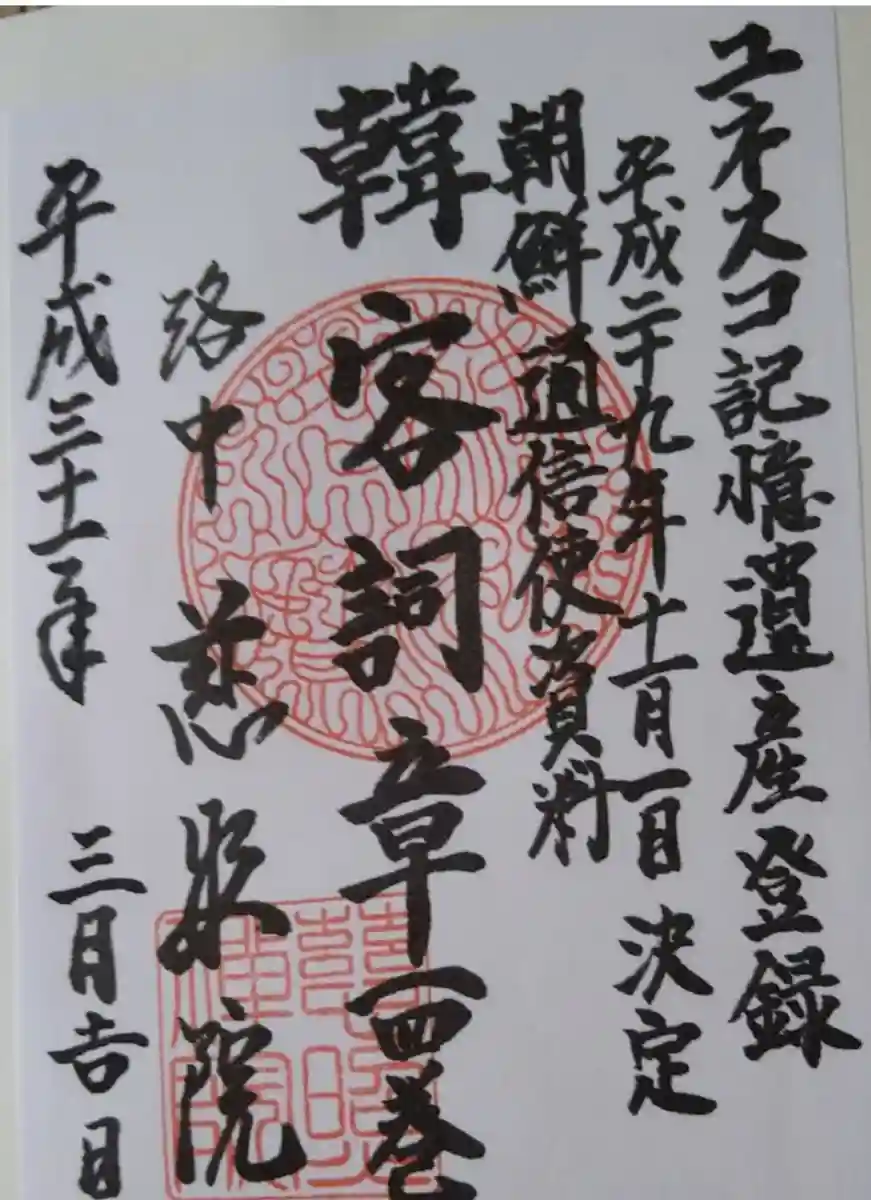 ユネスコ記憶遺産登録
平成二十九年十一月一日決定
朝鮮通信使資料
韓客詞章四巻
洛中 慈照院
平成三十一年 三月吉日
慈照禅院